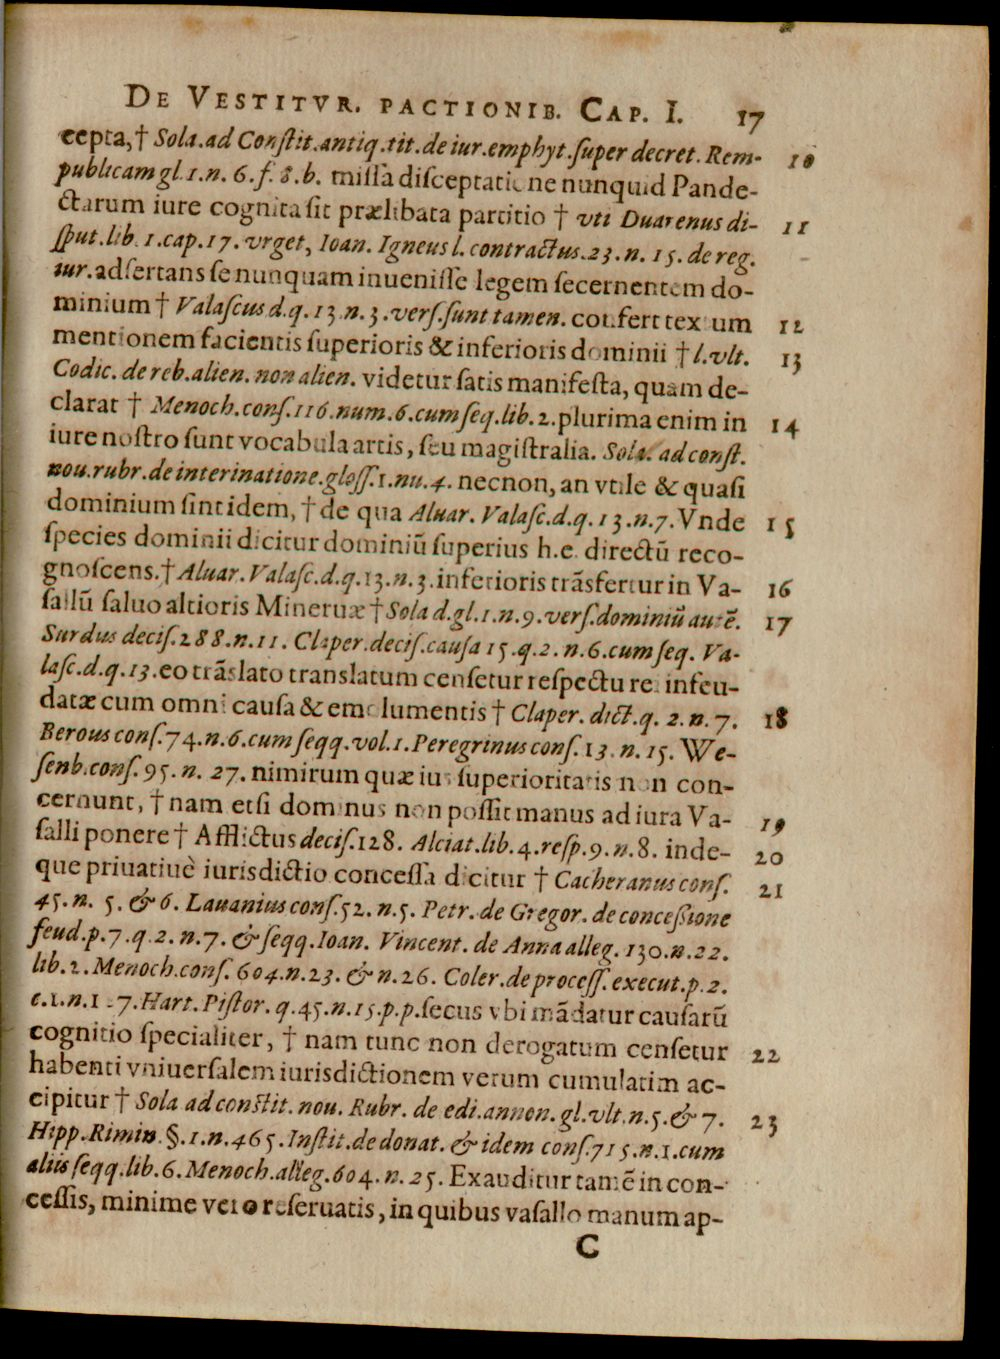 DE VESTITVR. PACTIONIB. CAP. I. 17
cepta,† Sola.ad Conſtit.antiq.tit.de iur.emphyt.ſuper decret. Rem- 10
publicam gl.1.n. 6.f. 8.b. miſſa diſceptatione nunquid Pande-
ctarum iure cognita ſit prælibata partitio † vti Duarenus di- 11
ſput.lib.1.cap.17. vrget, Ioan. Igneus l. contractus.23.n. 15. de reg.
iur.adſertans ſe nunquam inueniſſe legem ſecernentem do-
minium † Valaſcus d.q. 13.n.3.verſ.ſunt tamen. confert textum 12
mentionem facientis ſuperioris & inferioris dominii † l.vlt. 13
Codic. de reb.alien. non alien. videtur ſatis manifeſta, quam de-
clarat † Menoch.conſ.116.num.6.cum ſeq.lib.2.plurima enim in 14
iure noſtro ſunt vocabula artis, ſeu magiſtralia. Sola. ad conſt.
nou.rubr.de interinatione.gloſſ.1.nu.4. necnon, an vtile & quaſi
dominium ſint idem, † de qua Aluar. Valaſc.d.q. 13.n.7. Vnde 15
ſpecies dominii dicitur dominiũ ſuperius h.e. directũ reco-
gnoſcens.† Aluar. Valaſc.d.q.13.n.3.inferioris trãsfertur in Va- 16
ſallũ ſaluo altioris Mineruæ † Sola d.gl.1.n.9.verſ.dominiũ autẽ. 17
Surdus deciſ.288.n.11. Claper.deciſ.cauſa 15.q.2.n.6.cum ſeq. Va-
laſc.d.q.13.eo trãslato translatum cenſetur reſpectu rei infeu-
datæ cum omni cauſa & emolumentis † Claper. dict.q. 2.n.7. 18
Berous conſ.74.n.6.cum ſeqq.vol.1.Peregrinus conſ.13.n.15. We-
ſenb.conſ.95.n. 27. nimirum quæ ius ſuperioritatis non con-
cernunt, † nam etſi dominus non poſſit manus ad iura Va- 19
ſalli ponere † Afflictus deciſ.128. Alciat.lib.4.reſp.9.n.8. inde- 20
que priuatiuè iurisdictio conceſſa dicitur † Cacheranus conſ. 21
45.n. 5. & 6. Lauanius conſ.52.n.5. Petr. de Gregor. de conceßione
feud.p.7.q.2.n.7.& ſeqq.Ioan. Vincent. de Anna alleg.130.n.22.
lib.2.Menoch.conſ.604.n.23.& n.26. Coler.de proceſſ.execut.p.2.
Hart. Piſtor. q.45.n.15.p.p.ſecus vbi mãdatur cauſarũ
cognitio ſpecialiter, † nam tunc non derogatum cenſetur 22
habenti vniuerſalem iurisdictionem verum cumulatim ac-
cipitur † Sola ad conſtit. nou. Rubr. de edi.annon.gl.vlt.n.5.& 7. 23
Hipp.Rimin.§.1.n.465.Inſtit.de donat. & idem conſ.715.n.1.cum
aliis ſeqq.lib.6.Menoch.alleg.604.n.25. Exauditur tamẽ in con-
ceſſis, minime vero reſeruatis, in quibus vaſallo manum ap-
C